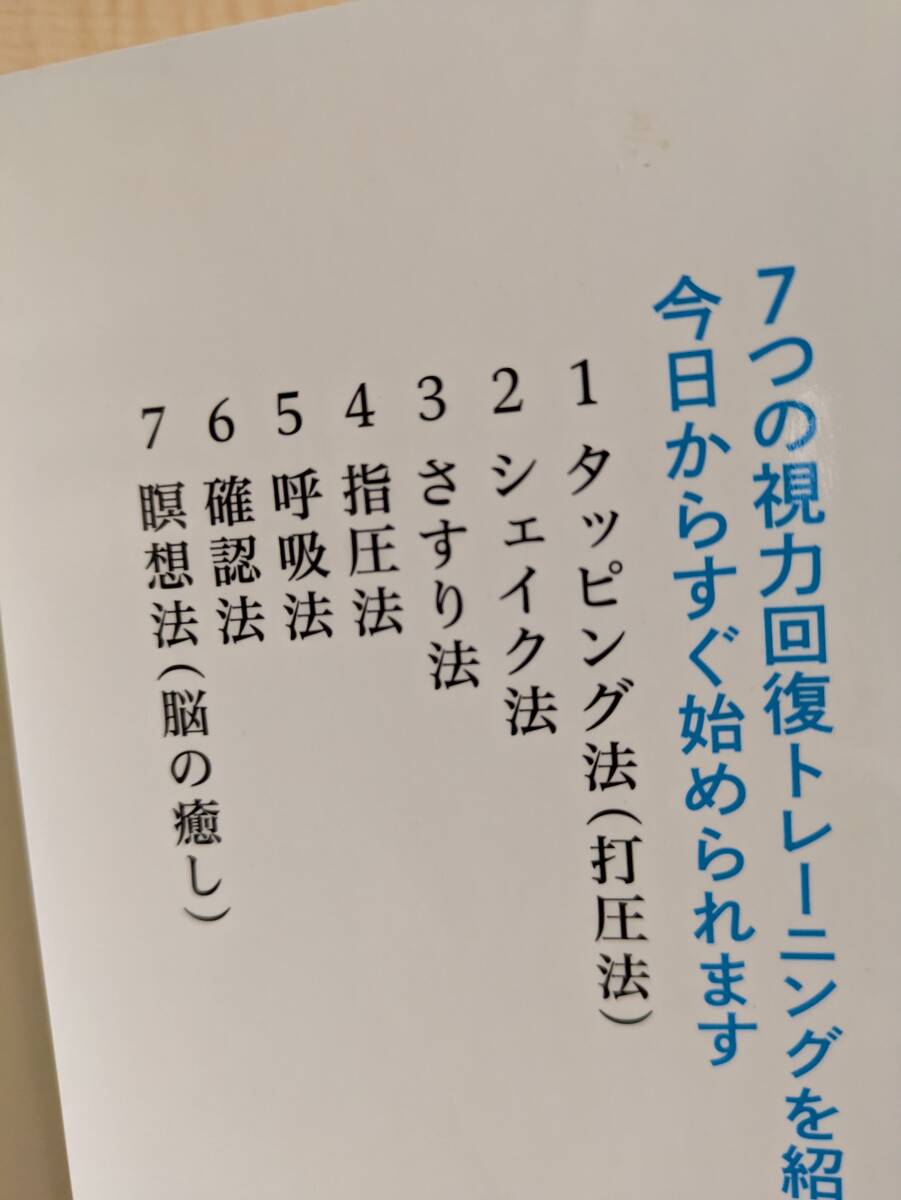 7つの視力回復トレーニングを紹
今日からすぐ始められます
1 タッピング法(打圧法)
2 シェイク法
3 さすり法
4 指圧法
5 呼吸法
6 確認法
7 瞑想法(脳の癒し)